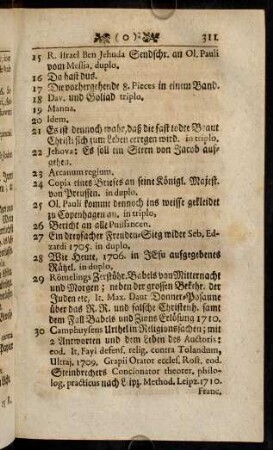 ( o ) 311
15 R. Israel Ben Jehuda Sendschr. an Ol. Pauli
vom Messia, duplo,
16 Da hast dus.
17 Die vorhergehende 8. Pieces in einem Band.
18 Dav. und Goliad triplo,
19 Manna.
20 Idem.
21 Es ist dennoch wahr, daß die fast todte Braut
Christi sich zum Leben erregen wird. in triplo.
22 Jehova! Es soll ein Stern von Jacob auf-
gehen.
23 Arcanum regium.
24 Copia eines Briefes an seine Königl. Majest.
von Preussen. in duplo.
25 Ol. Pauli kommt dennoch ins weisse gekleidet
zu Copenhagen an. in triplo,
26 Bericht an alle Puissancen.
27 Ein dreyfacher Freuden-Sieg wider Seb. Ed-
zardi 1705. in duplo,
28 Wie Heute, 1706. in JEsu aufgegebenes
Rätzel. in duplo.
29 Römelings Zerstöhr. Babels von Mitternacht
und Morgen; neben der grossen Bekehr. der
Juden etc. It. Max. Daut Donner-Posaune
über das R. R. und falsche Christenh. samt
dem Fall Babels und Zions Erlösung 1710.
30 Camphuysens Urthel in Religionssachen; mit
2 Antworten und dem Leben des Auctoris:
eod. It. Fayi defens. relig. contra Tolandum,
Ultraj. 1709. Grapii Orator eccles. Rost. eod.
Steinbrechers Concionator theorer, philo-
log. practicus nach Lipz. Method. Leipz. 1710.
Franc.